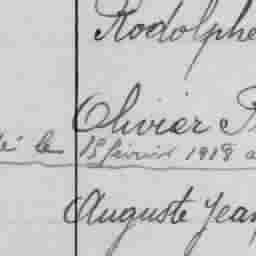 Rodolphe
Olivier
é le 15 février 1918 a
Auguste Jean